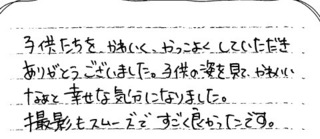 子供たちを、かわいく、かっこよく していただき
ありがとうございました。子供の姿を見て、かわいい
なぁと 幸せな気分になりました。
撮影もスムーズで すごく良かったです。